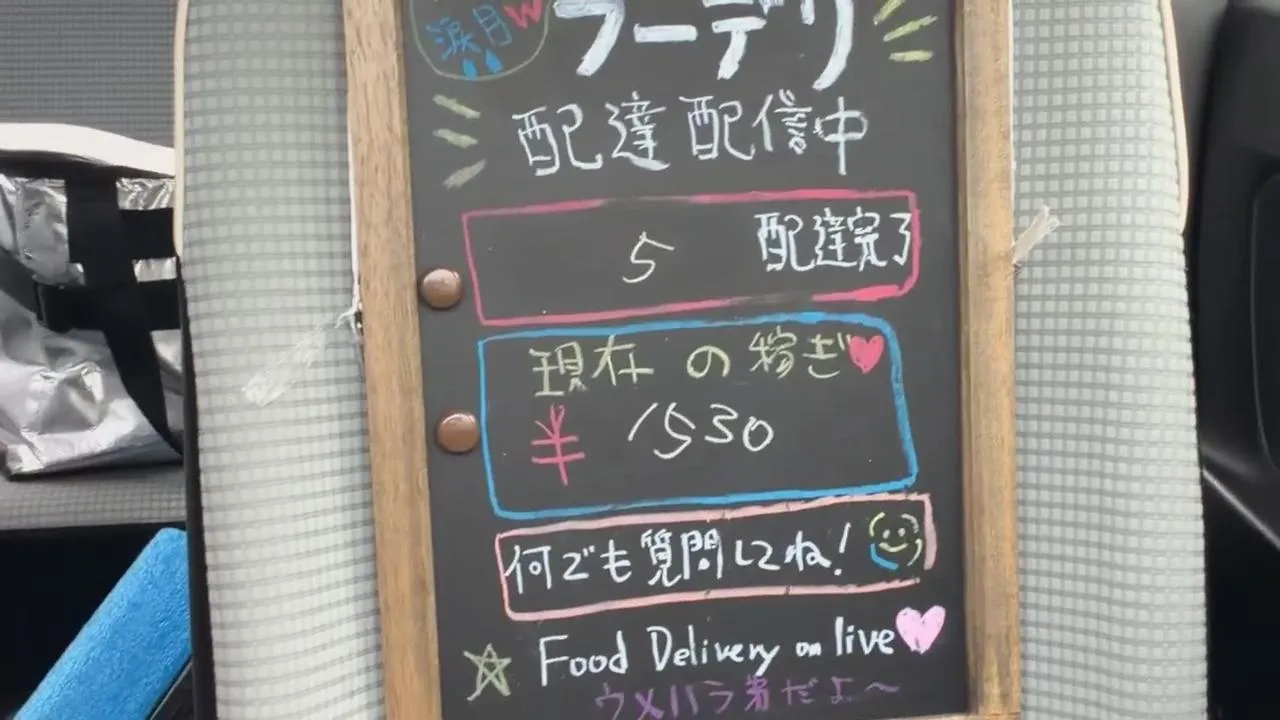 涙月
フーデリ
配達配信中
5 配達完了
現在の稼ぎ
¥ 1530
何でも質問してね!
Food Delivery on live
ウメハラ者だよ～